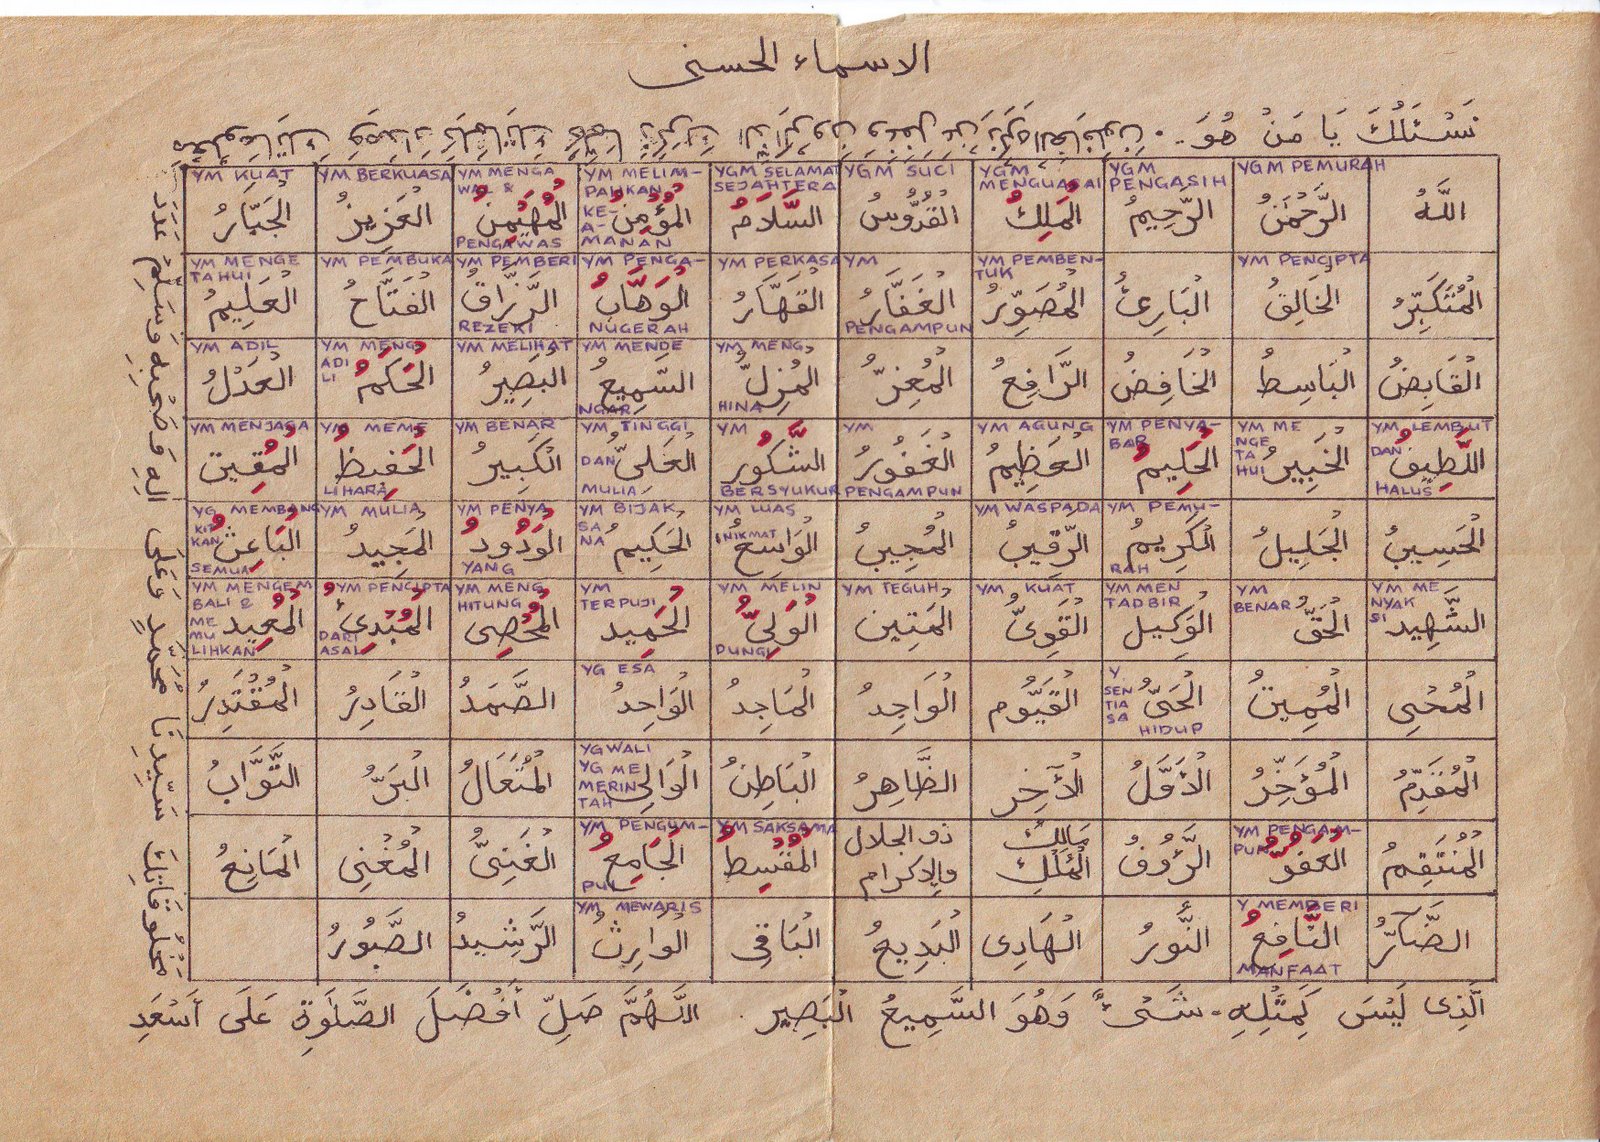 الاسماء الحسنى
نَسْئَلُكَ يَا مَنْ هُوَ
اللَّهُ
YGM PEMURAH
الرَّحْمَنُ
YGM PENGASIH
الرَّحِيمُ
YGM MENGUASAI
الْمَلِكُ
YGM SUCI
الْقُدُّوسُ
YGM SELAMAT SEJAHTERA
السَّلَامُ
YM MELIM-PAHKAN KE-A-MANAN
الْمُؤْمِنُ
YM MENGAWAL & PENGAWAS
الْمُهَيْمِنُ
YM BERKUASA
الْعَزِيزُ
YM KUAT
الْجَبَّارُ
الْمُتَكَبِّرُ
YM PENCIPTA
الْخَالِقُ
الْبَارِئُ
YM PEMBEN-TUK
الْمُصَوِّرُ
YM PENGAMPUN
الْغَفَّارُ
YM PERKASA
الْقَهَّارُ
YM PENGA-NUGERAH
الْوَهَّابُ
YM PEMBERI REZEKI
الرَّزَّاقُ
YM PEMBUKA
الْفَتَّاحُ
YM MENGE TAHUI
الْعَلِيمُ
الْقَابِضُ
الْبَاسِطُ
الْخَافِضُ
الرَّافِعُ
الْمُعِزُّ
YM MENG HINA
الْمُزِلُّ
YM MENDE NGAR
السَّمِيعُ
YM MELIHAT
الْبَصِيرُ
YM MENG ADI LI
الْحَكَمُ
YM ADIL
الْعَدْلُ
YM LEMBUT DAN HALUS
اللَّطِيفُ
YM ME NGE TA HUI
الْخَبِيرُ
YM PENYA-BAR
الْحَلِيمُ
YM AGUNG
الْعَظِيمُ
YM PENGAMPUN
الْغَفُورُ
YM BERSYUKUR
الشَّكُورُ
YM TINGGI DAN MULIA
الْعَلِيُّ
YM BENAR
الْكَبِيرُ
YM MEME LIHARA
الْحَفِيظُ
YM MENJAGA
الْمُقِيتُ
الْحَسِيبُ
الْجَلِيلُ
YM PEMU-RAH
الْكَرِيمُ
YM WASPADA
الرَّقِيبُ
الْمُجِيبُ
YM LUAS NIKMAT
الْوَاسِعُ
YM BIJAK SA NA
الْحَكِيمُ
YM PENYA YANG
الْوَدُودُ
YM MULIA
الْمَجِيدُ
YG MEMBANG KIT KAN SEMUA
الْبَاعِثُ
YM ME NYAK SI
الشَّهِيدُ
YM BENAR
الْحَقُّ
YM MEN TADBIR
الْوَكِيلُ
YM KUAT
الْقَوِيُّ
YM TEGUH
الْمَتِينُ
YM MELIN DUNGI
الْوَلِيُّ
YM TERPUJI
الْحَمِيدُ
YM MENG HITUNG
الْمُحْصِى
YM PENCIPTA DARI ASAL
الْمُبْدِئُ
YM MENGEM BALI & ME MU LIHKAN
الْمُعِيدُ
الْمُحْيِى
الْمُمِيتُ
Y. SEN TIA SA HIDUP
الْحَىُّ
الْقَيُّوم
الْوَاجِدُ
الْمَاجِدُ
YG ESA
الْوَاحِدُ
الصَّمَدُ
الْقَادِرُ
الْمُقْتَدِرُ
الْمُقَدِّمُ
الْمُؤَخِّرُ
الْأَوَّلُ
الْآخِرُ
الظَّاهِرُ
الْبَاطِنُ
YG WALI YG ME MERIN TAH
الْوَالِى
الْمُتَعَالُ
الْبَرُّ
التَّوَّابُ
الْمُنْتَقِمُ
YM PENGAM-PUN
الْعَفُوُّ
الرَّؤُوفُ
مَالِكُ الْمُلْكِ
ذو الجلال والاكرام
YM SAKSAMA
الْمُقْسِطُ
YM PENGUM-PUL
الْجَامِعُ
الْغَنِىُّ
الْمُغْنِى
الْمَانِعُ
الضَّآرُّ
Y MEMBERI MANFAAT
النَّافِعُ
النُّورُ
الْهَادِى
الْبَدِيعُ
الْبَاقِى
YM MEWARIS
الْوَارِثُ
الرَّشِيدُ
الصَّبُورُ
الَّذِى لَيْسَ كَمِثْلِهِ شَىْءٌ وَهُوَ السَّمِيعُ الْبَصِير . اللَّهُمَّ صَلِّ أَفْضَلَ الصَّلَوٰةِ عَلَى أَسْعَدِ
مَخْلُوقَاتِكَ سَيِّدِنَا مُحَمَّدٍ وَعَلَى الِهِ وَصَحْبِهِ وَسَلِّمْ عَدَدَ
مَعْلُومَاتِكَ وَمِدَادَ كَلِمَاتِكَ